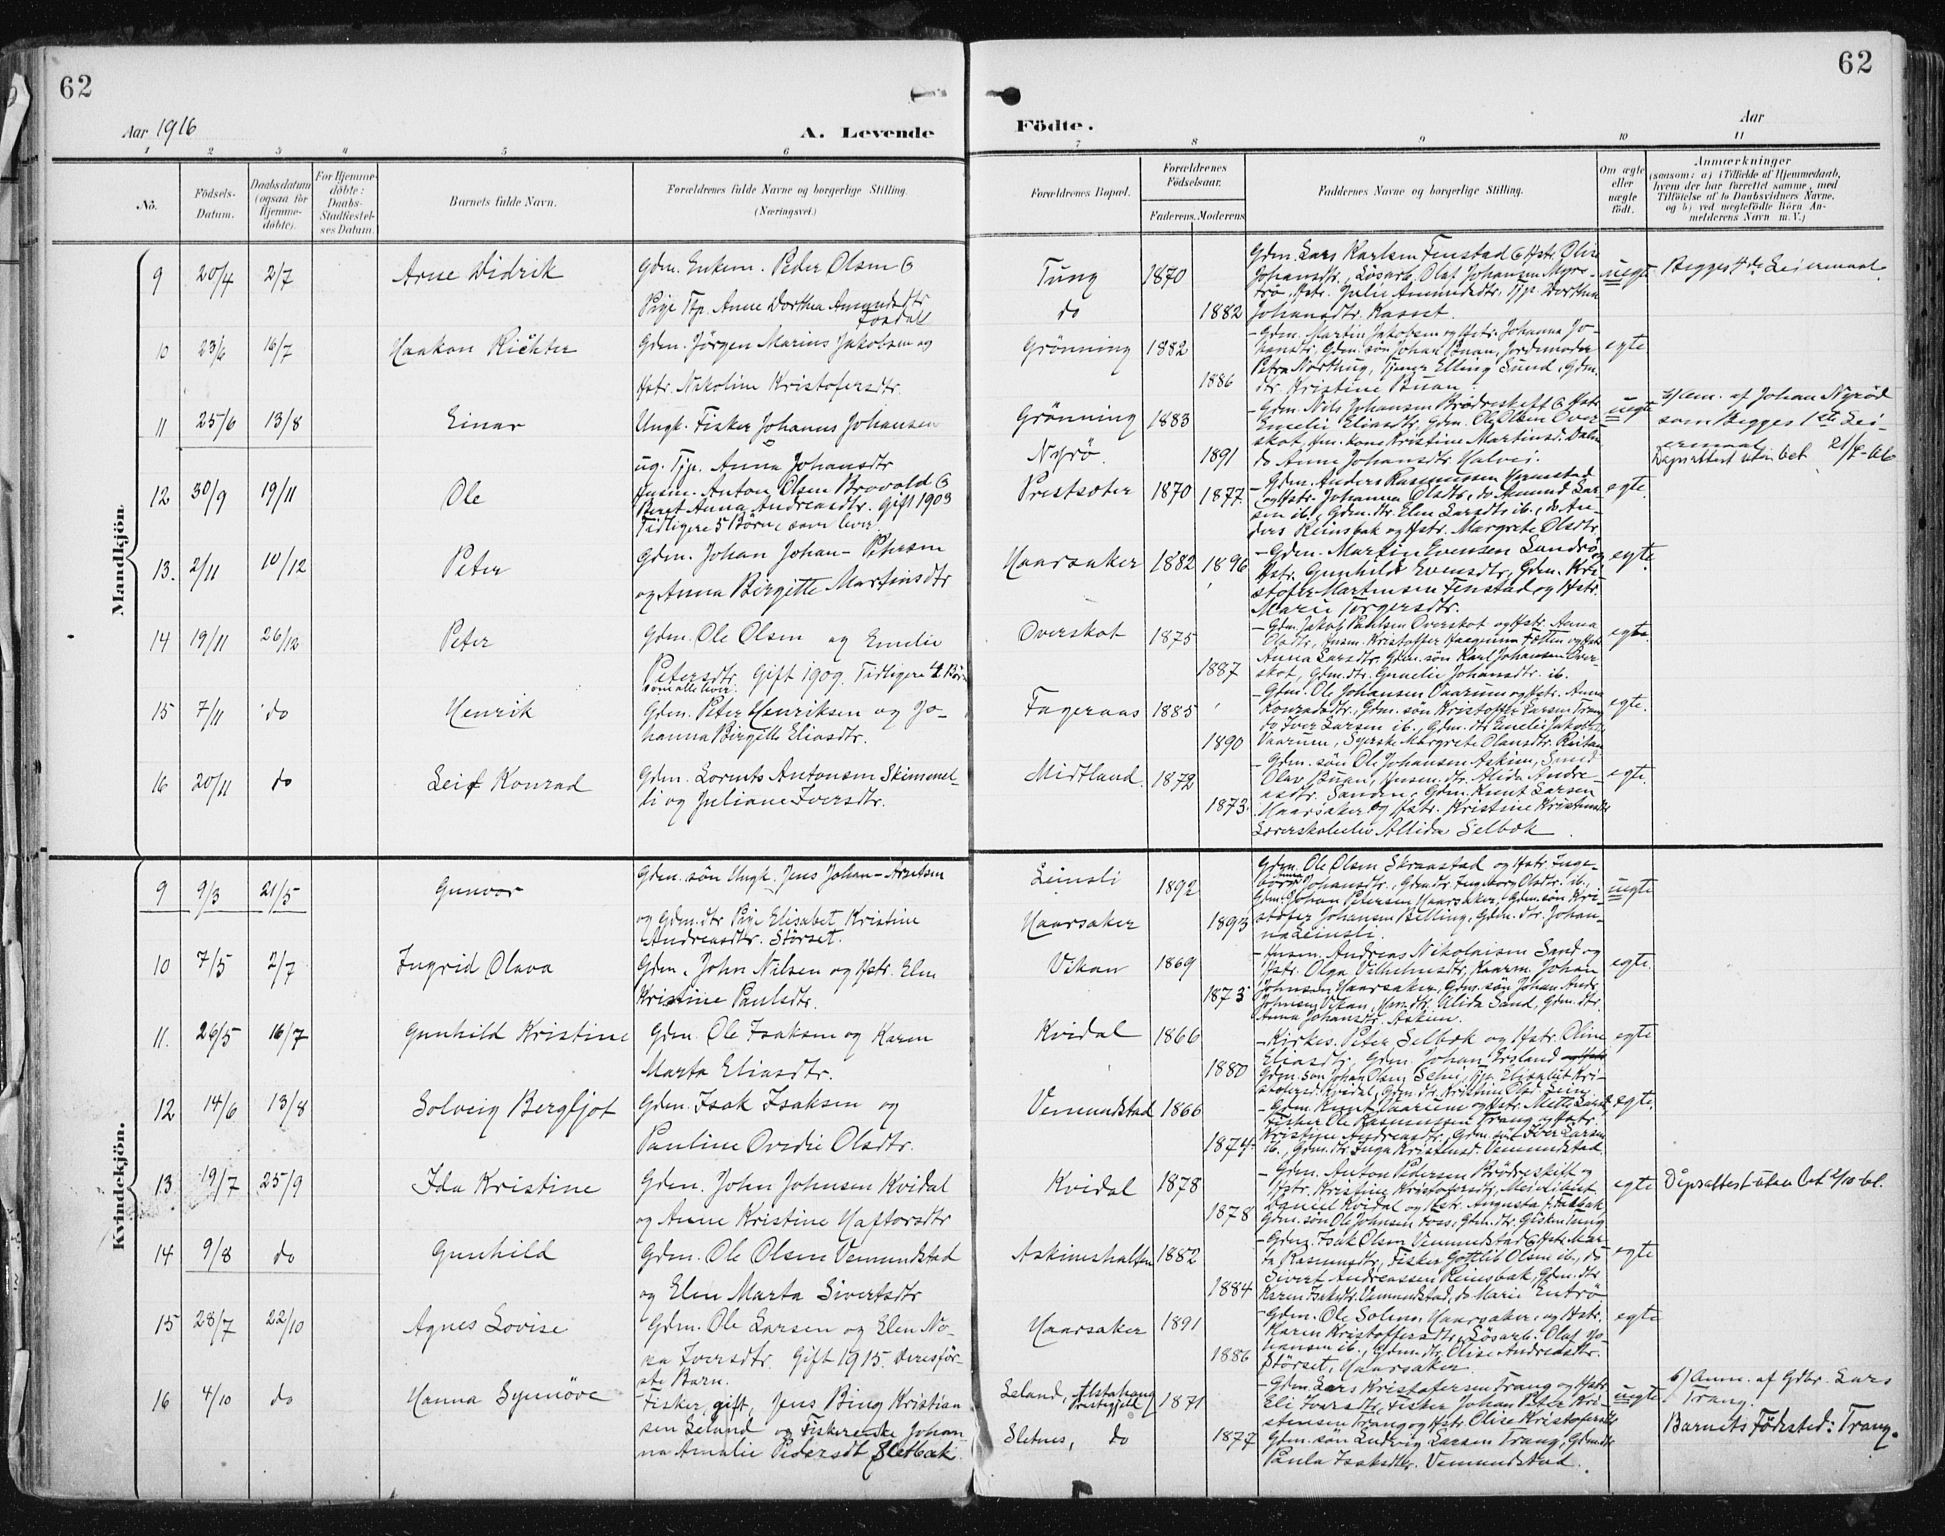 62
62
Aar 1916
A. Levende
Födte.
Aar
1 2 3 4 5 6 7 8 9 10 11
No.
Födsels-
Datum.
Daabsdatum
(ogsaa for
Hjemme-
döbte).
For Hjemme-
döbte:
Daabs-
Stadfæstel-
ses Datum.
Barnets fulde Navn.
Forældrenes fulde Navne og borgerlige Stilling.
(Næringsvei.)
Forældrenes Bopæl.
Forældrenes
Födselsaar.
Faderens. Moderens
Faddernes Navne og borgerlige Stilling.
Om ægte
eller
uægte
födt.
Anmærkninger
(saasom: a) i Tilfælde af Hjemmedaab,
hvem der har forrettet samme, med
Tilföielse af to Daabsvidners Navne,
og b) ved uægtefödte Börn An-
melderens Navn m. V.)
Mandkjön.
9 20/4 2/7 Arne Didrik
Gdm. Enkem. Peder Olsen &
Pige Tjp. Anne Dorthea Amundsdtr
Tung 1870
do 1882
Gdm. Lars Karlsen Fenstad & Hstr. Olise
Johansdtr., Løsarb. Olaf Johansen Myr-
Johansdtr. Rasset.
uegte
Begges 4de Leiermaal.
10 23/6 16/7 Haakon Richter
Gdm. Jörgen Marius Jakobsen og
Hstr. Nikoline Kristofersdtr.
Grönning 1882
1886
- Gdm. Martin Jakobsen og Hstr. Johanna Jo-
hansdtr. Gdm. søn Johan Buan, Jordemoder
Petra Northug, Tjener Elling Sund, Gdm.
dtr. Kristine Buan.
egte
11 25/6 13/8 Einar
Ungk. Fisker Johannes Johansen
ug. Tjp. Anna Johansdtr
Grönning 1883
Nyrö. 1891
- Gdm. Nils Johansen Brödreskift & Hstr.
Emelie Eliasdtr, Gdm. Ole Olsen Over-
skot, Hm. kone Kristine Martinsd. Dalen
do Anne Johansdtr Halvei.
uegte
Hjem. af Johan Nyröd
som Begges 1ste Lei-
ermaal
Daapsattest uten bet.
12 30/9 19/11 Ole
Husm. Anton Olsen Brovold &
Beret Anna Andreasdtr. Gift 1903
Tidligere 5 Börn, som lever.
Prestsæter 1870 1877.
- Gdm. Anders Rasmussen Vemstad
og Hstr. Johanna Olsdtr, do Amund Lar-
sen ib., Gdm. dtr. Elen Larsdtr ib., do An-
ders Reinsbak og Hstr. Margrete Olsdtr.
egte.
13. 2/11 10/12 Peter
Gdm. Johan Johan-Petersen
og Anna Birgitte Martinsdtr
Haarsaker 1882 1896
- Gdm. Martin Evensen Sandrö og
Hstr. Gunhild Evensdtr, Gdm. Kri-
stofer Martinsen Fenstad og Hstr.
Marie Torgersdtr.
egte.
14 19/11 26/12 Peter
Gdm. Ole Olsen og Emelie
Petersdtr. Gift 1909. Tidligere 4 Börn
som alle lever.
Overskot 1875
1887
- Gdm. Jakob Paulsen Overskot og Hstr. Anna
Anna Larsdtr. Gdm. søn Karl Johansen Over-
skot, Gdm. dtr. Emelie Johansdtr. ib.
egte.
15 7/11 do Henrik
Gdm. Peter Henriksen og Jo-
hanna Birgitte Eliasdtr.
Fageraas 1885
1890
- Gdm. Ole Johansen Vaarum og Hstr. Anna
Konradsdtr., Gdm. søn Kristoffer Larsen Trang
do Iver Larsen ib., Gdm. dtr. Emelie Jakobs-
Vaarum, Syerske Margrete Olausdtr. Reitan
egte.
16 20/11 do Leif Konrad
Gdm. Lornts Antonsen Skimmel-
li og Juliane Iversdtr.
Midtland. 1872
1873.
- Gdm. søn Ole Johansen Askim, Smed
Olav Buan, Husm. dtr. Alida Andre-
asdtr. Sanden, Gdm. Knut Larsen
Haarsaker og Hstr. Kristine Kristensdtr
Lærerskoleelev Allida Selbæk.
egte.
Kvindekjön.
9 9/3 21/5 Gunvor
Gdm. søn Ungk. Jens Johan-Arntsen
og Gdm. dtr Pige Elisabet Kristine
Andreasdtr. Störset.
Leinsli 1892
Haarsaker 1893
Gdm. Ole Olsen Skraastad og Hstr. Inge-
borg Anna Johansdtr., Gdm. dtr. Ingeborg Olsdtr. ib.,
Gdm. Johan Petersen Haarsaker, Gdm. søn Kri-
stofer Johansen Belling, Gdm. dtr. Johan-
na Leinsli.
uegte
10 7/5 2/7 Ingrid Olava
Gdm. John Nilsen og Hstr. Elen
Kristine Paulsdtr.
Vikan 1869
1873
- Husm. Andreas Nikolaisen Sand og
Hstr. Olga Vilhelmsdtr, Kaarm. Johan
Johnsen Haarsaker, Gdm. søn Johan Andr.
Johnsen Vikan, Hm. dtr. Alida Sand, Gdm. dtr.
Anna Johansdtr. Askim.
egte.
11. 26/5 16/7 Gunhild Kristine
Gdm. Ole Isaksen og Karen
Marta Eliasdtr.
Kvidal 1866
1880
- Kirkes. Peter Selbæk og Hstr. Oline
Eliasdtr, Gdm. Johan Ersland
egte
12 14/6 13/8 Solveig Bergljot
Gdm. Isak Isaksen og
Pauline Ovedie Olsdtr.
Vemundstad 1866
1874.
- Gdm. Knut Vaarum og Hstr. Mette Larsd.
Fisker Ole Rasmussen Trang og Hstr.
Kristine Andreasdtr., Gdm. søn Iver Larsen
ib., Gdm. dtr. Inga Kristensd. Vemundstad
egte.
13 19/7 25/9 Ida Kristine
Gdm. John Johnsen Kvidal
og Anne Kristine Haftorsdtr
Kvidal 1878
1878
- Gdm. Anton Petersen Brödreskift og
Hstr. Kristine Kristofersdtr, Meieribest.
Daniel Kvidal og Hstr. Augusta
Gdm. søn Ole Johnsen Foss, Gdm. dtr. Gusken Tung
egte
Dåpsattest uten bet. 2/10 61.
14 9/8 do Gunhild
Gdm. Ole Olsen Vemundstad
og Elen Marta Sivertsdtr
Askimshalsen 1882
1884
- Gdm. Isak Olsen Vemundstad & Hstr. Mar-
ta Rasmusdtr, Fisker Gottlib Olsen ib., do
Sivert Andreassen Reinsbak, Gdm. dtr.
Karen Isaksdtr. Vemundstad, do Marie Enkrö
egte
15 28/7 22/10 Agnes Lovise
Gdm. Ole Larsen og Elen No-
ra Iversdtr. Gift 1915 Deres för-
ste Barn.
Haarsaker 1891
1886
- Gdm. Ole Solem, Haarsaker, og Hstr.
Karen Kristoffersdtr, Løsarb. Olaf Jo-
hansen ib., Gdm. dtr. Olise Andreasdtr.
Störset, Haarsaker
egte
16 4/10 do Hanna Synnöve
- Fisker, gift, Jens Bing Kristian-
sen Seland og Fiskerenke Johan-
na Amalie Pedersdt Sletbak.
Seland, Alstahaug
Prestegjeld 1871
Sletnes, do 1877
- Gdm. Lars Kristofersen Trang og Hstr.
Eli Iversdtr, Fisker Johan Peter Kri-
stensen Trang og Hstr. Olise Kristofersdtr
Gdm. søn Ludvig Larsen Trang, Gdm. dtr
Paula Isaksdtr. Vemundstad.
uegte
b) Anm. af Gdbr. Lars
Trang.
Barnets Födested: Trang.